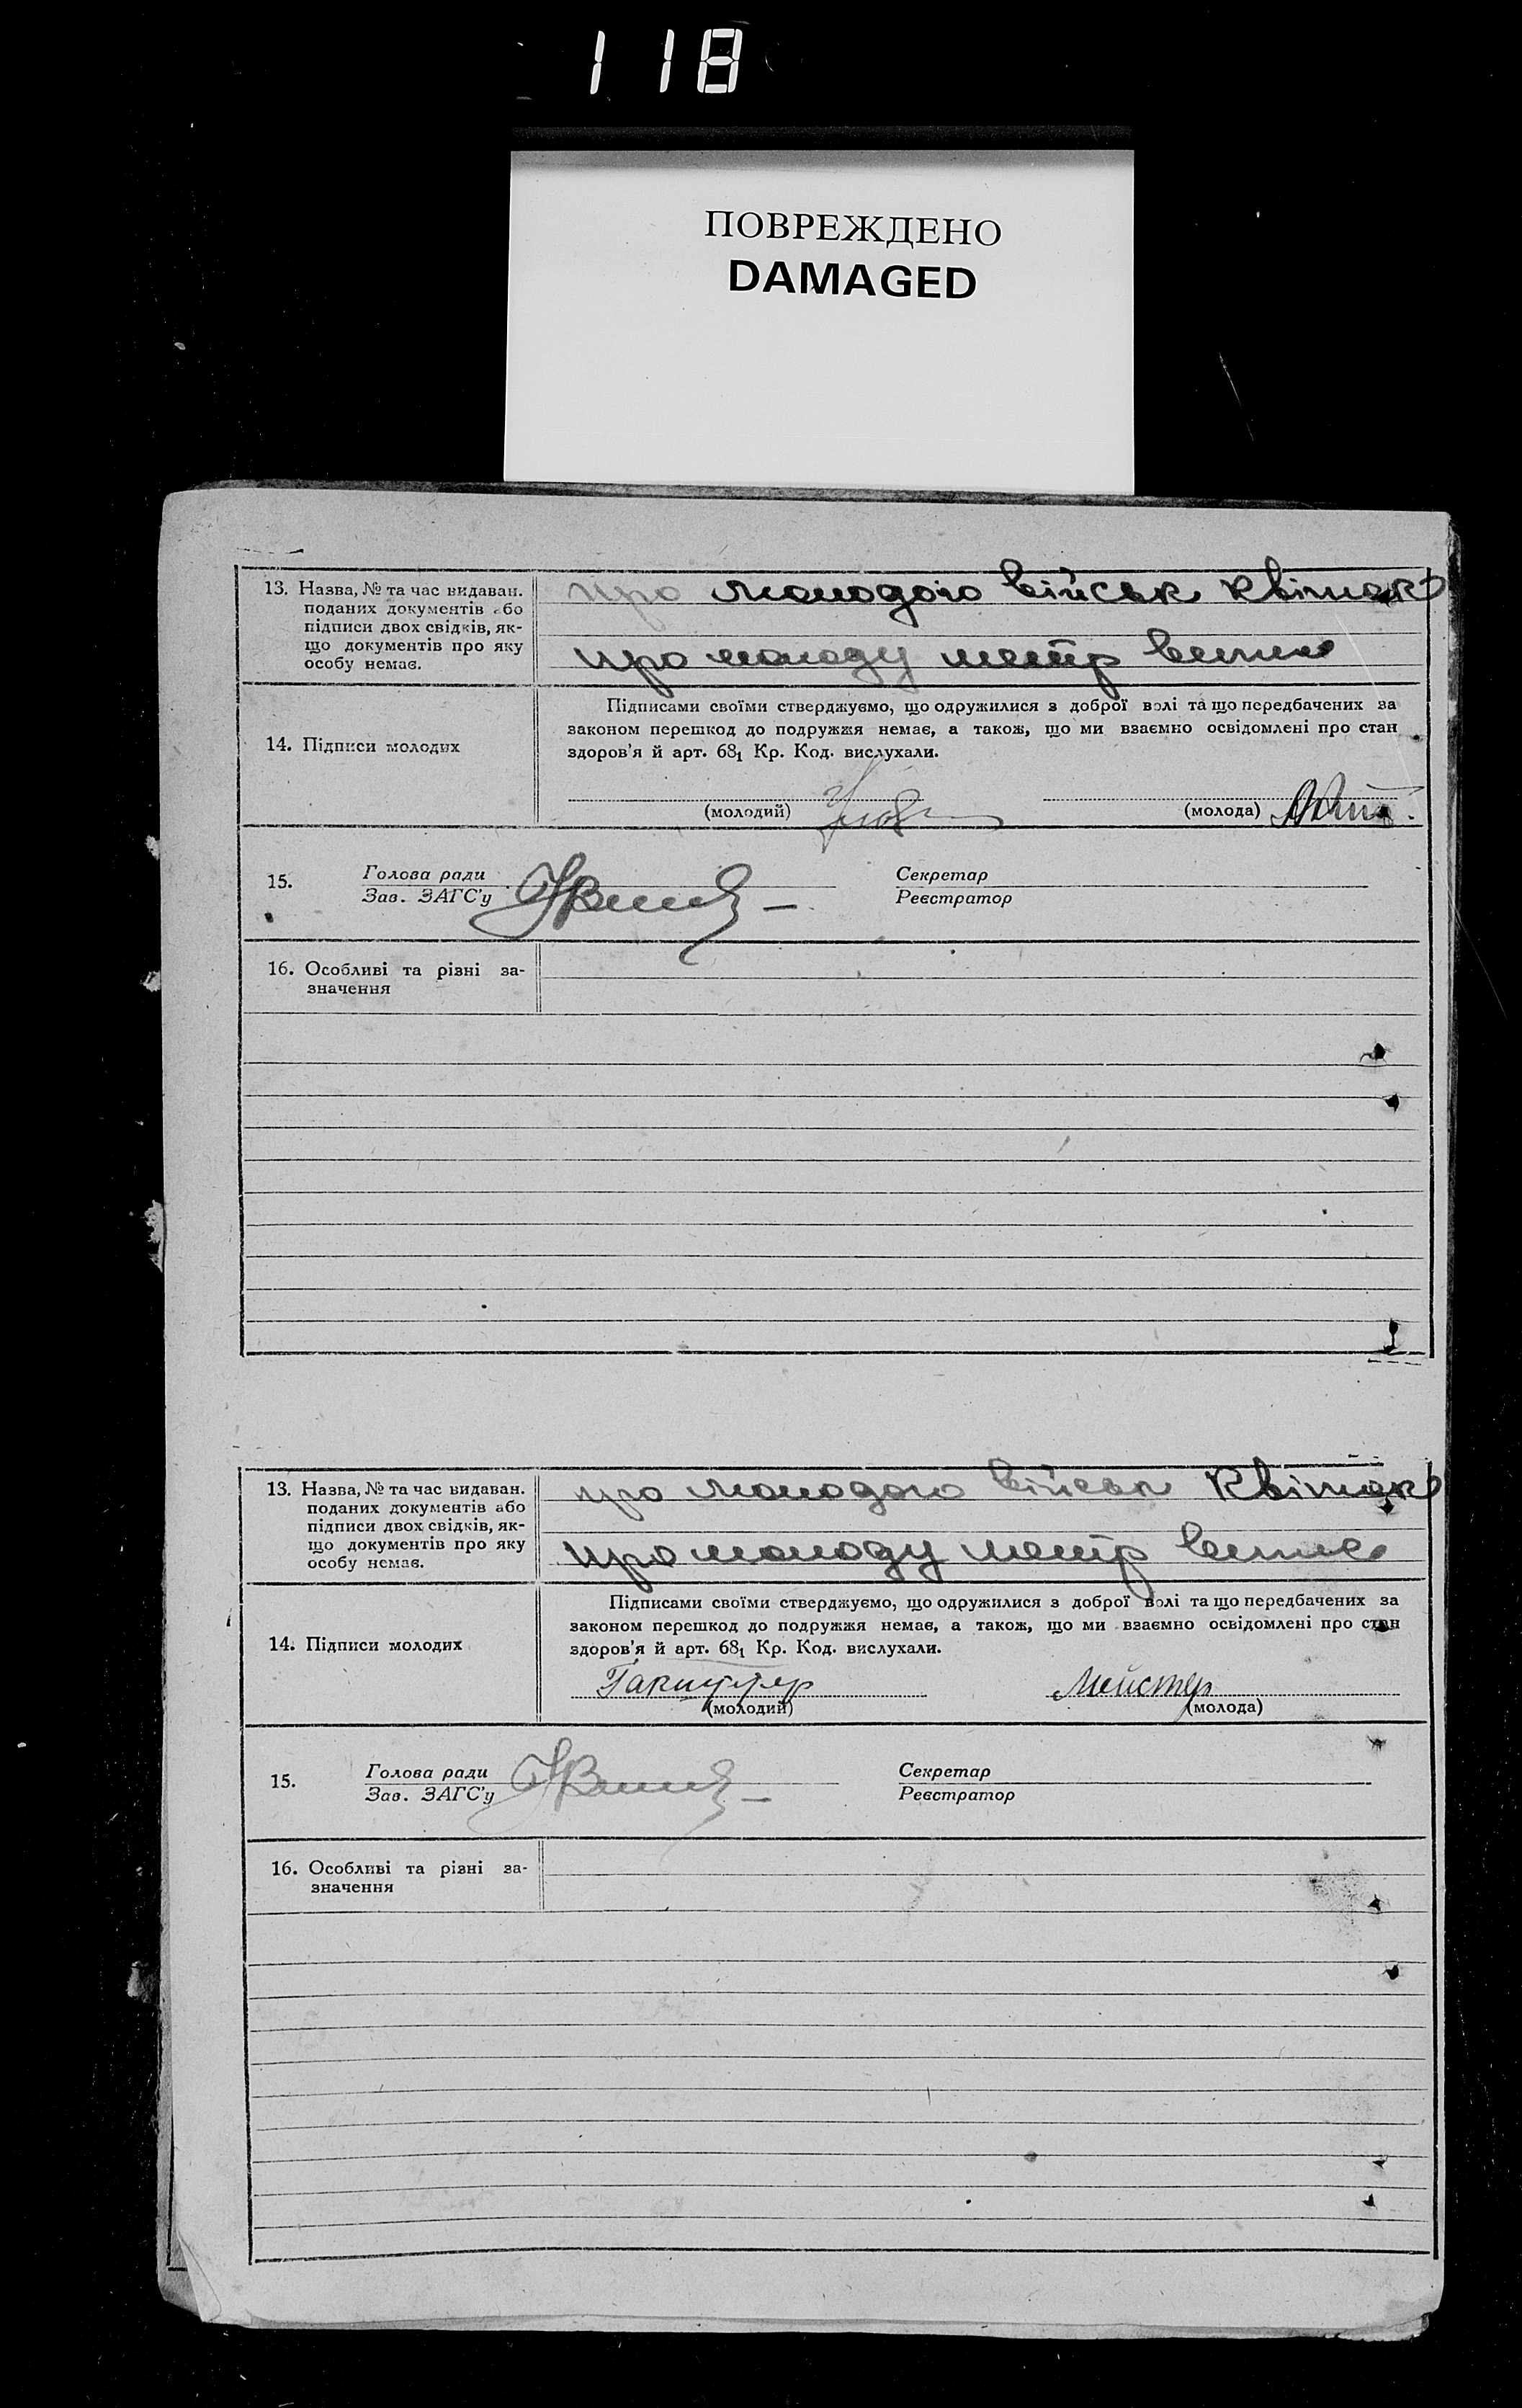 118
ПОВРЕЖДЕНО
DAMAGED
13. Назва, № та час видаван.
поданих документів або
підписи двох свідків, як-
що документів про яку
особу немає.
про молодого військ квіток
про молоду метр
14. Підписи молодих
Підписами своїми стверджуємо, що одружилися з доброї волі та що передбачених за
законом перешкод до подружжя немає, а також, що ми взаємно освідомлені про стан
здоров'я й арт. 68₁ Кр. Код. вислухали.
(молодий) (молода)
15. Голова ради Секретар
Зав. ЗАГС'у Реєстратор
16. Особливі та різні за-
значення
13. Назва, № та час видаван.
поданих документів або
підписи двох свідків, як-
що документів про яку
особу немає.
про молодого військ квіток
про молоду метр
14. Підписи молодих
Підписами своїми стверджуємо, що одружилися з доброї волі та що передбачених за
законом перешкод до подружжя немає, а також, що ми взаємно освідомлені про стан
здоров'я й арт. 68₁ Кр. Код. вислухали.
Мейстер
(молодий) (молода)
15. Голова ради Секретар
Зав. ЗАГС'у Реєстратор
16. Особливі та різні за-
значення